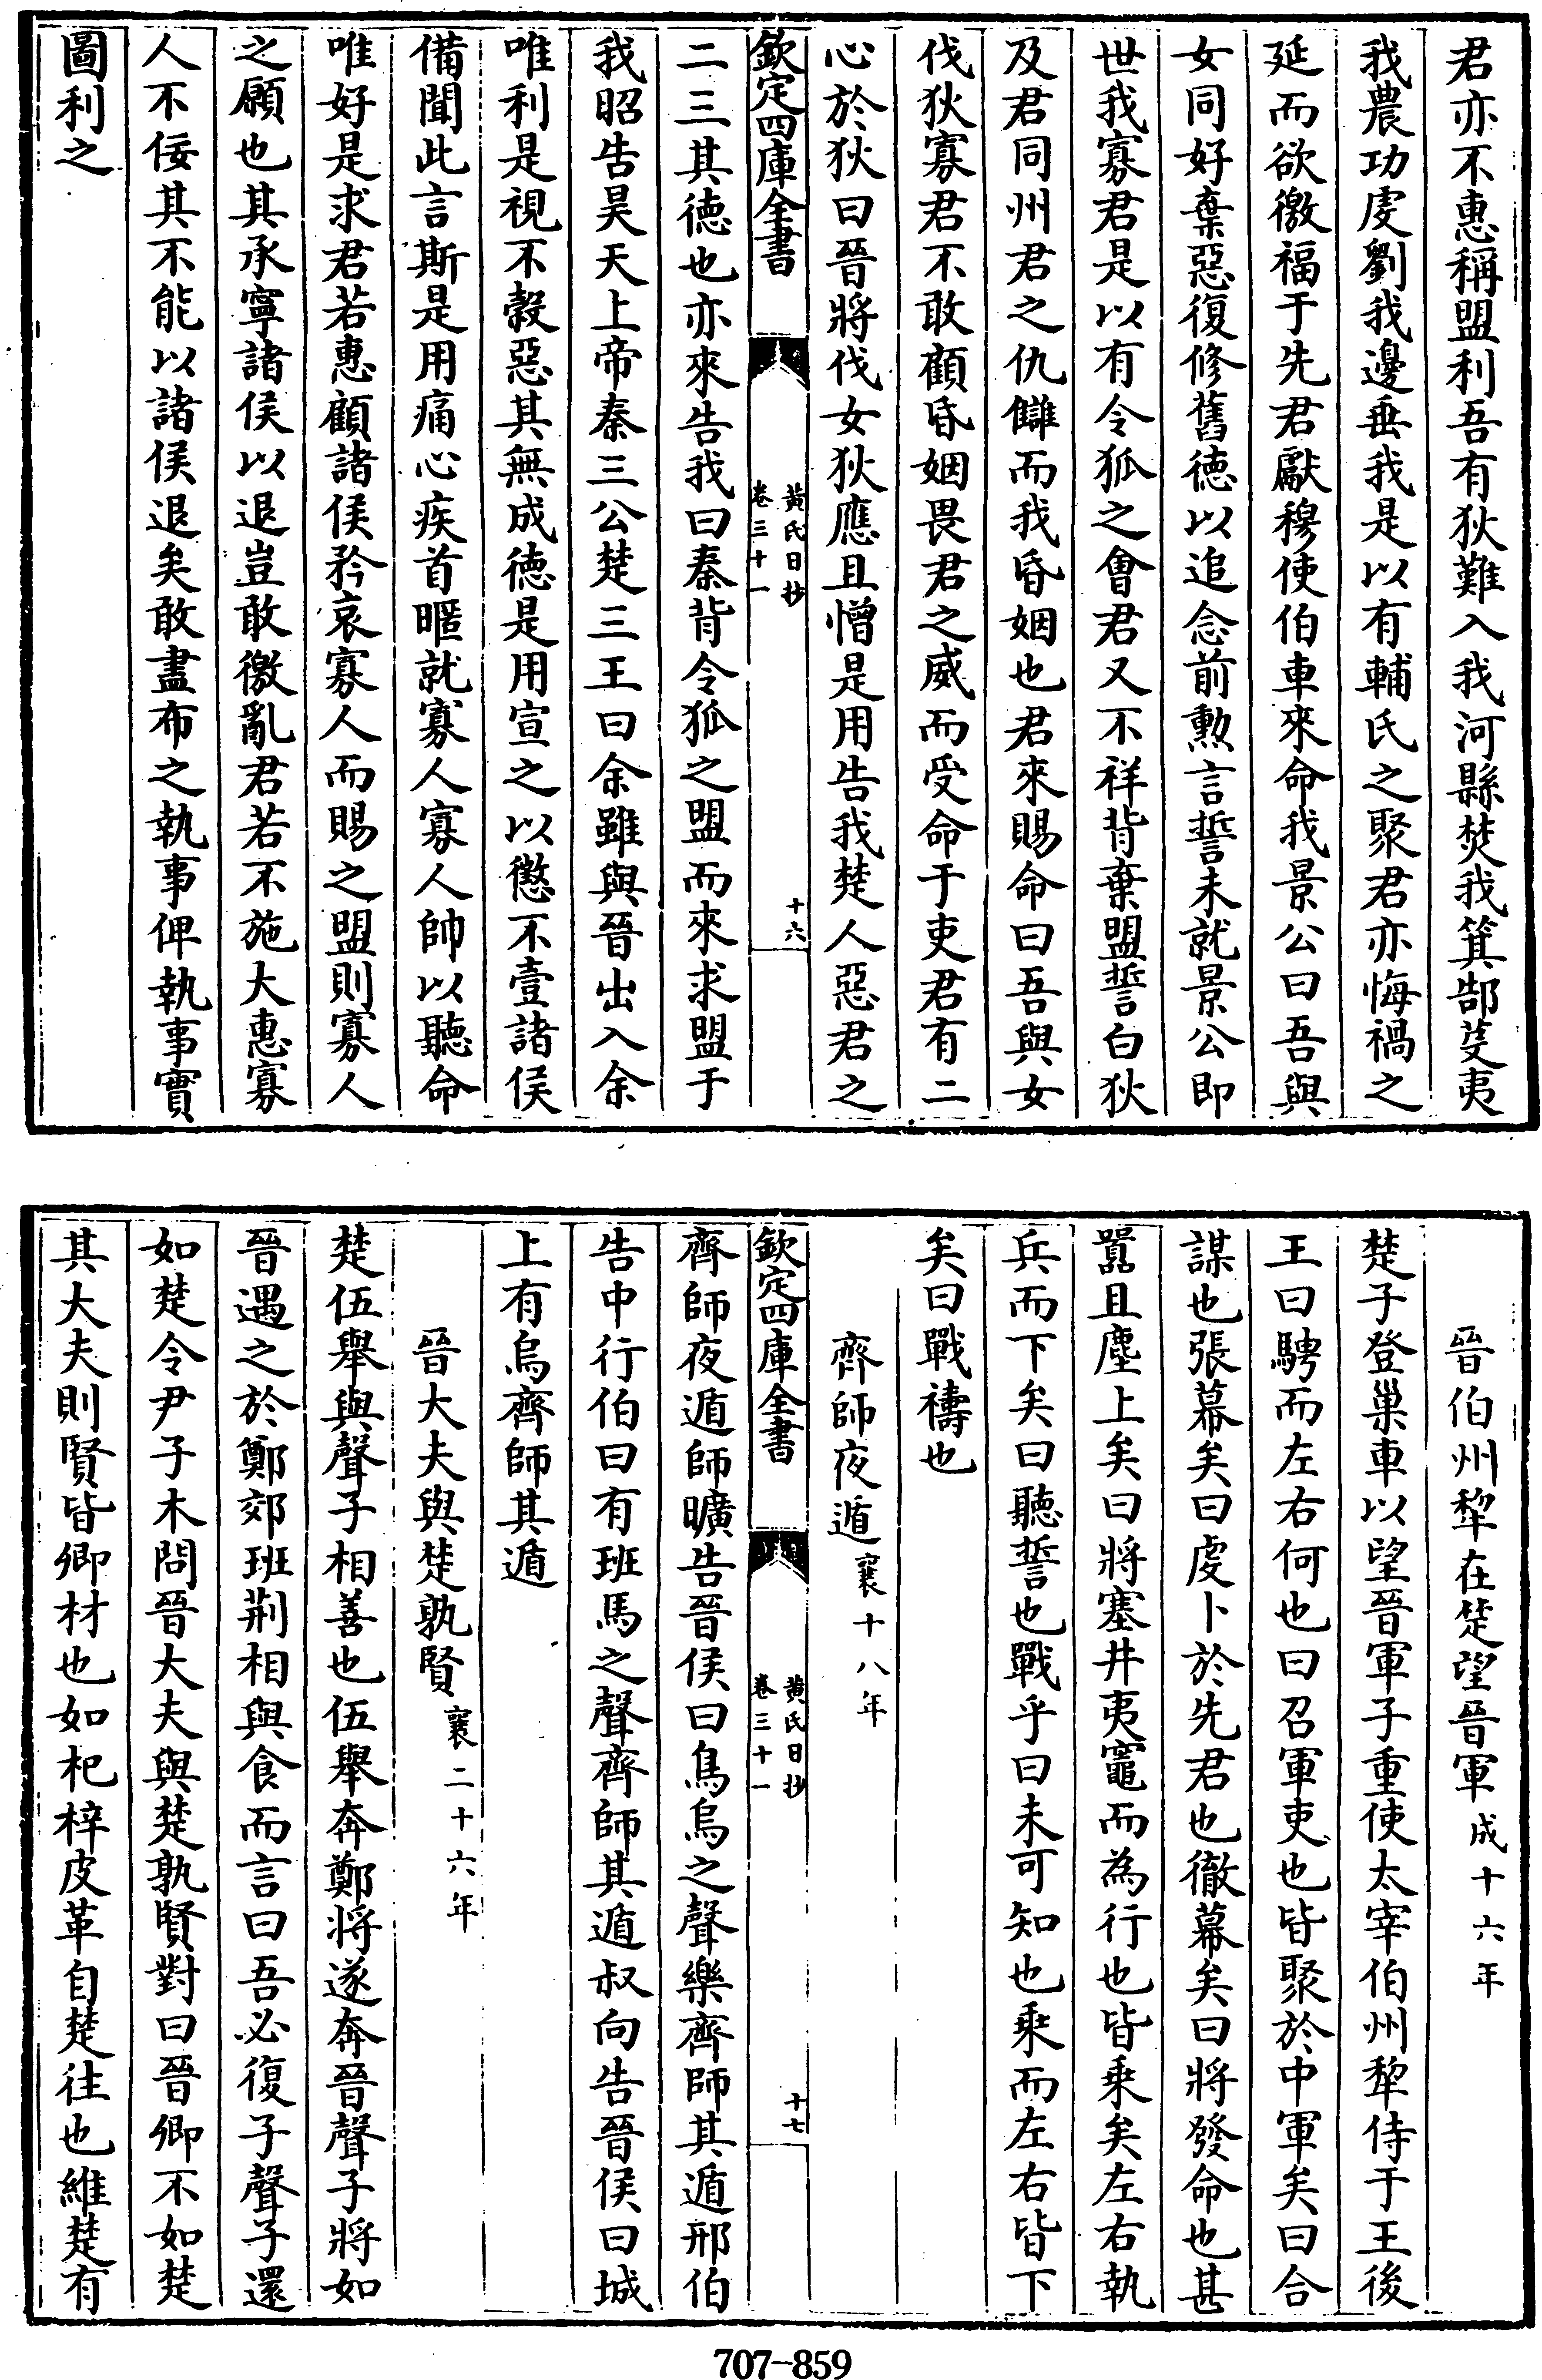 君亦不惠稱盟利吾有狄難入我河縣焚我箕郜芟夷
我農功虔劉我邊垂我是以有輔氏之聚君亦悔禍之
延而欲徼福于先君獻穆使伯車來命我景公曰吾與
女同好棄惡復修舊徳以追念前勲言誓未就景公即
世我寡君是以有令狐之會君又不祥背棄盟誓白狄
及君同州君之仇讎而我昏姻也君來賜命曰吾與女
伐狄寡君不敢顧昏姻畏君之威而受命于吏君有二
心於狄曰晉將伐女狄應且憎是用告我楚人惡君之
欽定四庫全書
黄氏日抄
卷三十一
十六
二三其徳也亦來告我曰秦背令狐之盟而來求盟于
我昭告昊天上帝秦三公楚三王曰余雖與晉出入余
唯利是視不穀惡其無成徳是用宣之以懲不壹諸侯
備聞此言斯是用痛心疾首暱就寡人寡人帥以聽命
唯好是求君若惠顧諸侯矜哀寡人而賜之盟則寡人
之願也其承寧諸侯以退豈敢徼亂君若不施大惠寡
人不佞其不能以諸侯退矣敢盡布之執事俾執事實
圖利之
晉伯州犂在楚望晉軍成十六年
楚子登巢車以望晉軍子重使太宰伯州犂侍于王後
王曰騁而左右何也曰召軍吏也皆聚於中軍矣曰合
謀也張幕矣曰虔卜於先君也徹幕矣曰將發命也甚
囂且塵上矣曰將塞井夷竈而為行也皆乘矣左右執
兵而下矣曰聽誓也戰乎曰未可知也乘而左右皆下
矣曰戰禱也
齊師夜遁襄十八年
欽定四庫全書
黄氏日抄
卷三十一
十七
齊師夜遁師曠告晉侯曰鳥烏之聲樂齊師其遁邢伯
告中行伯曰有班馬之聲齊師其遁叔向告晉侯曰城
上有烏齊師其遁
晉大夫與楚孰賢襄二十六年
楚伍舉與聲子相善也伍舉奔鄭將遂奔晉聲子將如
晉遇之於鄭郊班荆相與食而言曰吾必復子聲子還
如楚令尹子木問晉大夫與楚孰賢對曰晉卿不如楚
其大夫則賢皆卿材也如杞梓皮革自楚往也維楚有
707-859